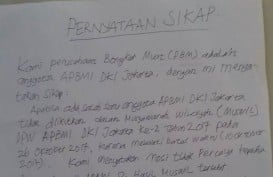 PERNYATAAN SIKAP.
Kami perusahaan Bongkar Muat (PBM) adalah
anggota APBMI DKI Jakarta, dengan ini menya-
takan sikap:
Apabila ada salah satu anggota APBMI DKI Jakarta
tidak dilibatkan dalam Musyawarah wilayah (Muswil)
DPW APBMI DKI Jakarta ke-2 Tahun 2017 pada
26 Oktober 2017, karena
2017). Kami menyatakan Mosi Tidak Percaya kepada
Hasil Muswil tersebut